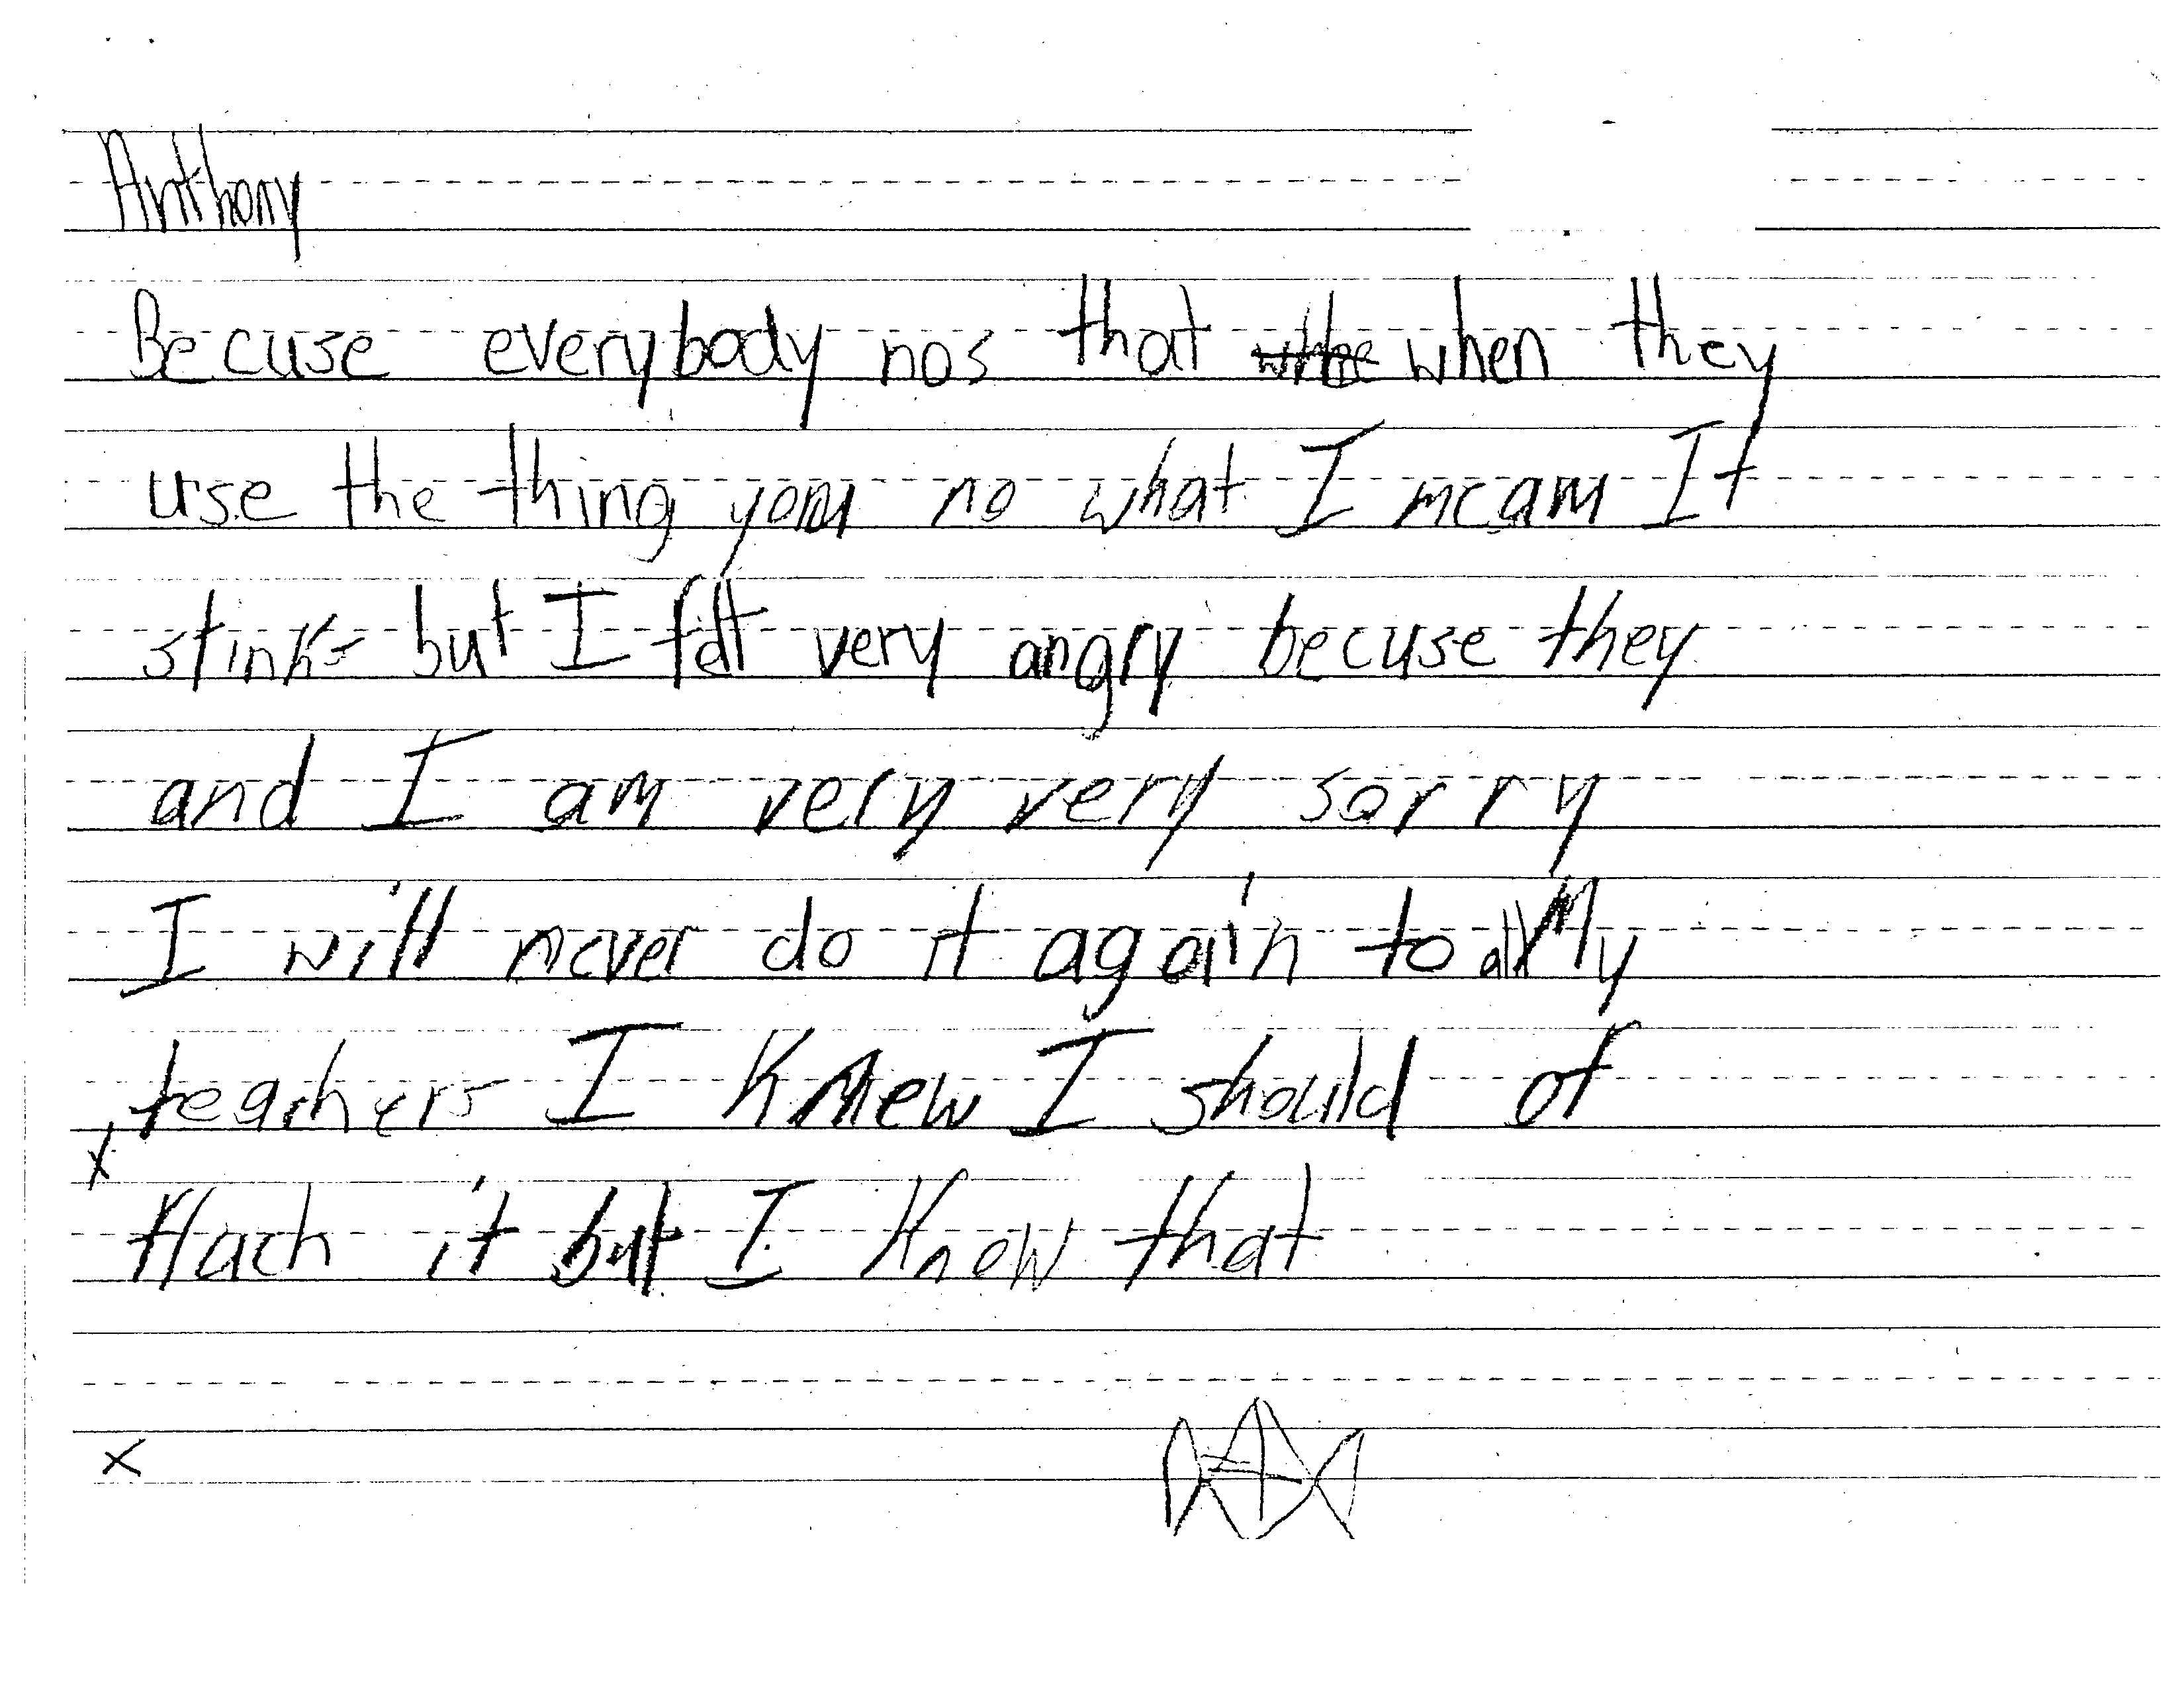 Anthony
Becuse everybody nos that when they
use the thing you no what I meam It
stinks but I felt very angry becuse they
and I am very very sorry
I will never do it again to all My
teachers I Knew I should of
it but I Know that